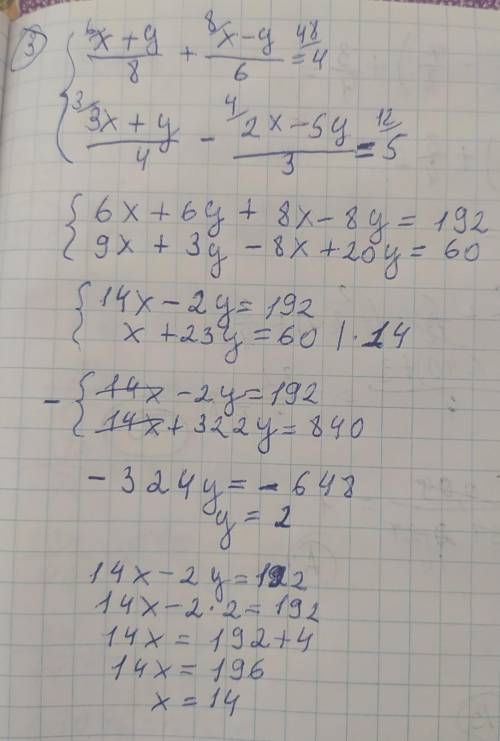 3) { ⁶⁄ (x + y)/8 + ⁸⁄ (x - y)/6 = ⁴⁸⁄ 4
{ ³⁄ (3x + y)/4 - ⁴⁄ (2x - 5y)/3 = ¹²⁄ 5
{ 6x + 6y + 8x - 8y = 192
{ 9x + 3y - 8x + 20y = 60
{ 14x - 2y = 192
{ x + 23y = 60 | · 14
- { 14x - 2y = 192
{ 14x + 322y = 840
- 324y = - 648
y = 2
14x - 2y = 192
14x - 2 · 2 = 192
14x = 192 + 4
14x = 196
x = 14